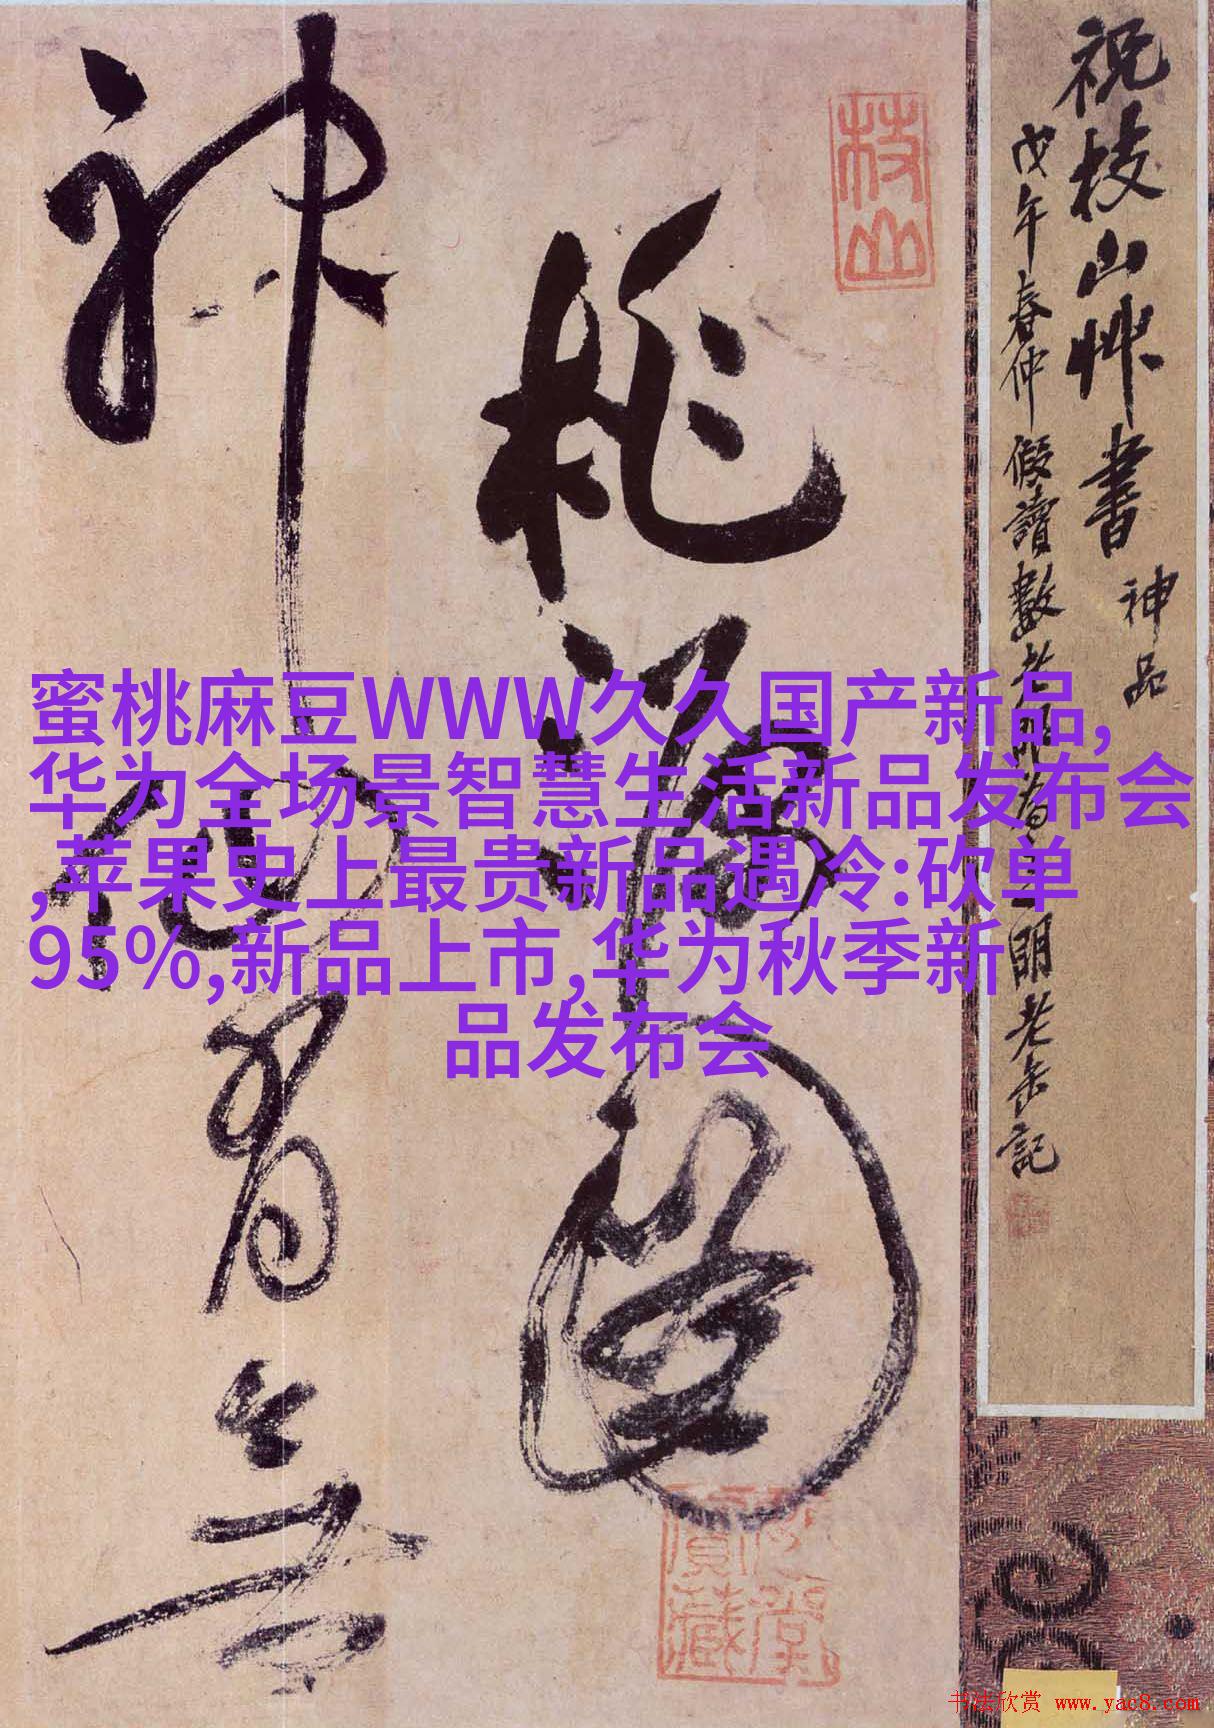 祝枝山艸書 神品
戊午春仲假讀數
老缶記
枝山
桃源圖
神仙有無
蜜桃麻豆WWW久久国产新品,
华为全场景智慧生活新品发布会
,苹果史上最贵新品遇冷:砍单
95%,新品上市,华为秋季新
品发布会
书法欣赏 www.yac8.com